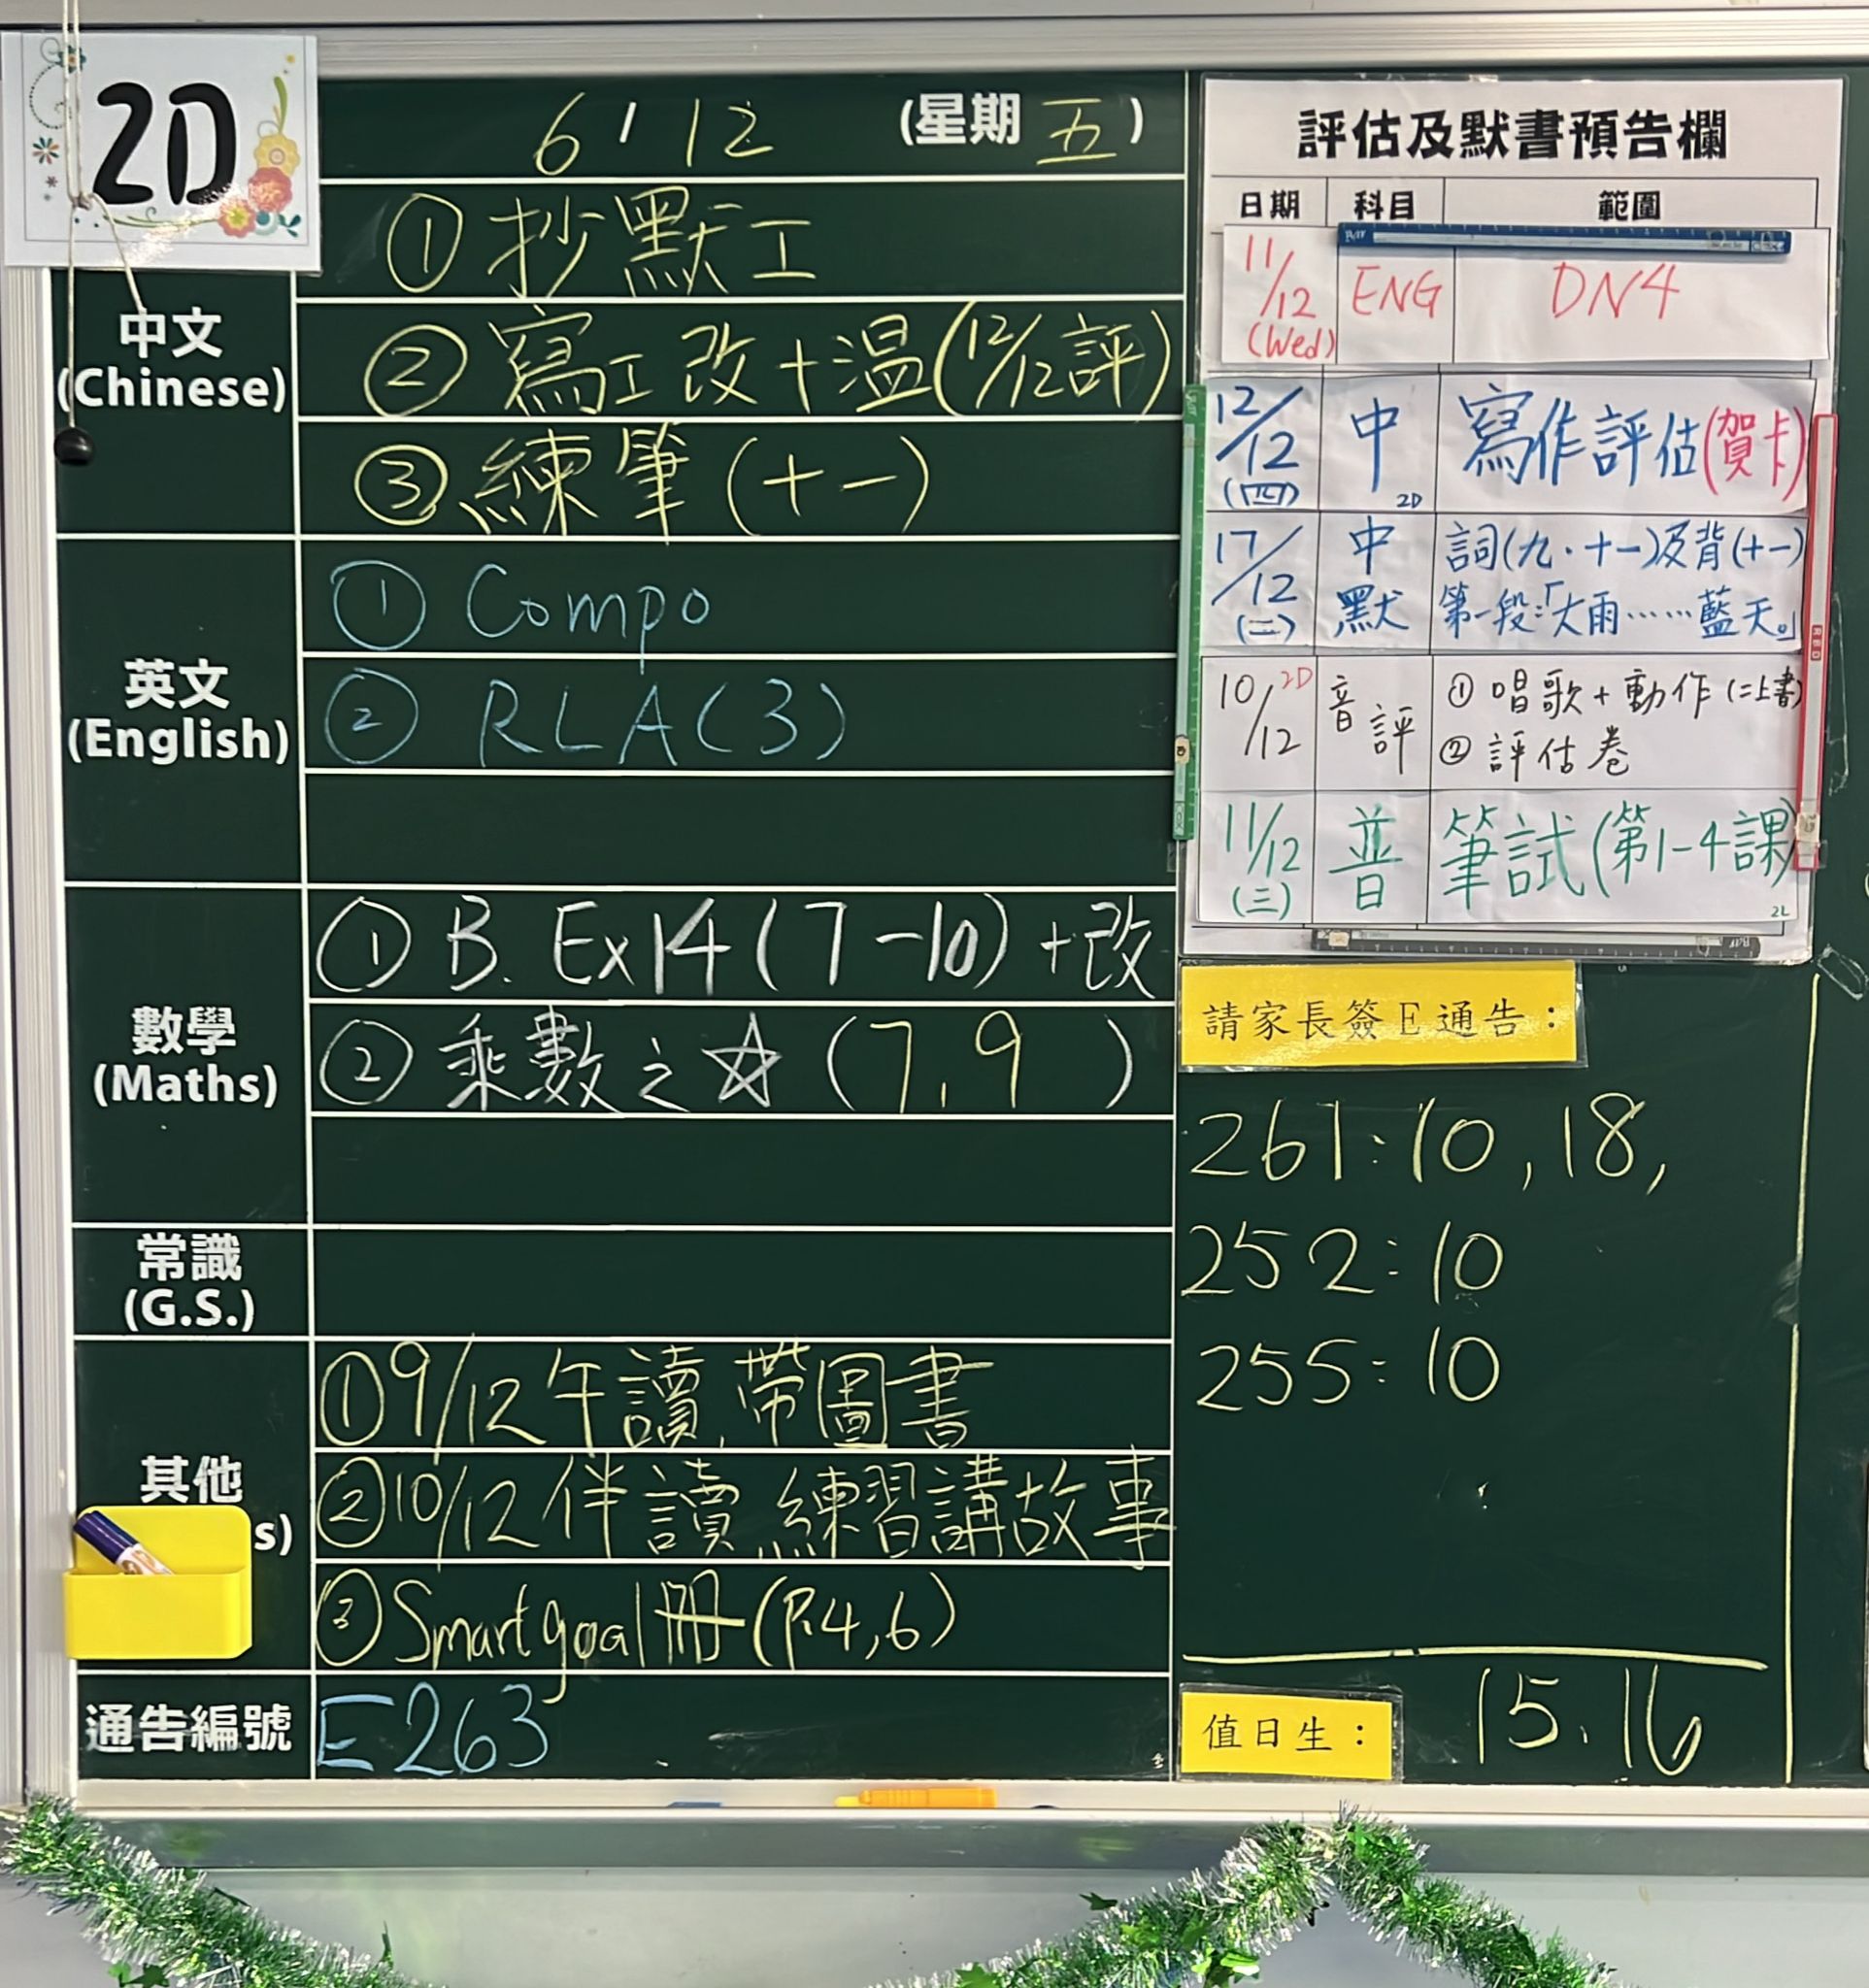 2D
6/12 (星期五)
中文
(Chinese)
① 抄默工
② 寫工改+温(12/12評)
③ 練筆(十一)
英文
(English)
① Compo
② RLA(3)
數學
(Maths)
① B. Ex14(7-10)+改
② 乘數之☆(7,9 )
常識
(G.S.)
其他
s)
① 9/12午讀,帶圖書
② 10/12伴讀,練習講故事
③ Smart goal冊(P.4,6)
通告編號
E263
評估及默書預告欄
日期 科目 範圍
11/12 (Wed) ENG DN4
12/12 (四) 中 2D 寫作評估(賀卡)
17/12 (二) 中默 詞(九、十一)及背(十一)
第一段:「大雨……藍天。」
10/12 2D 音評 ① 唱歌+動作(二上書)
② 評估卷
11/12 (三) 普 筆試(第1-4課)
2L
請家長簽E通告:
261:10,18,
252:10
255:10
值日生: 15.16